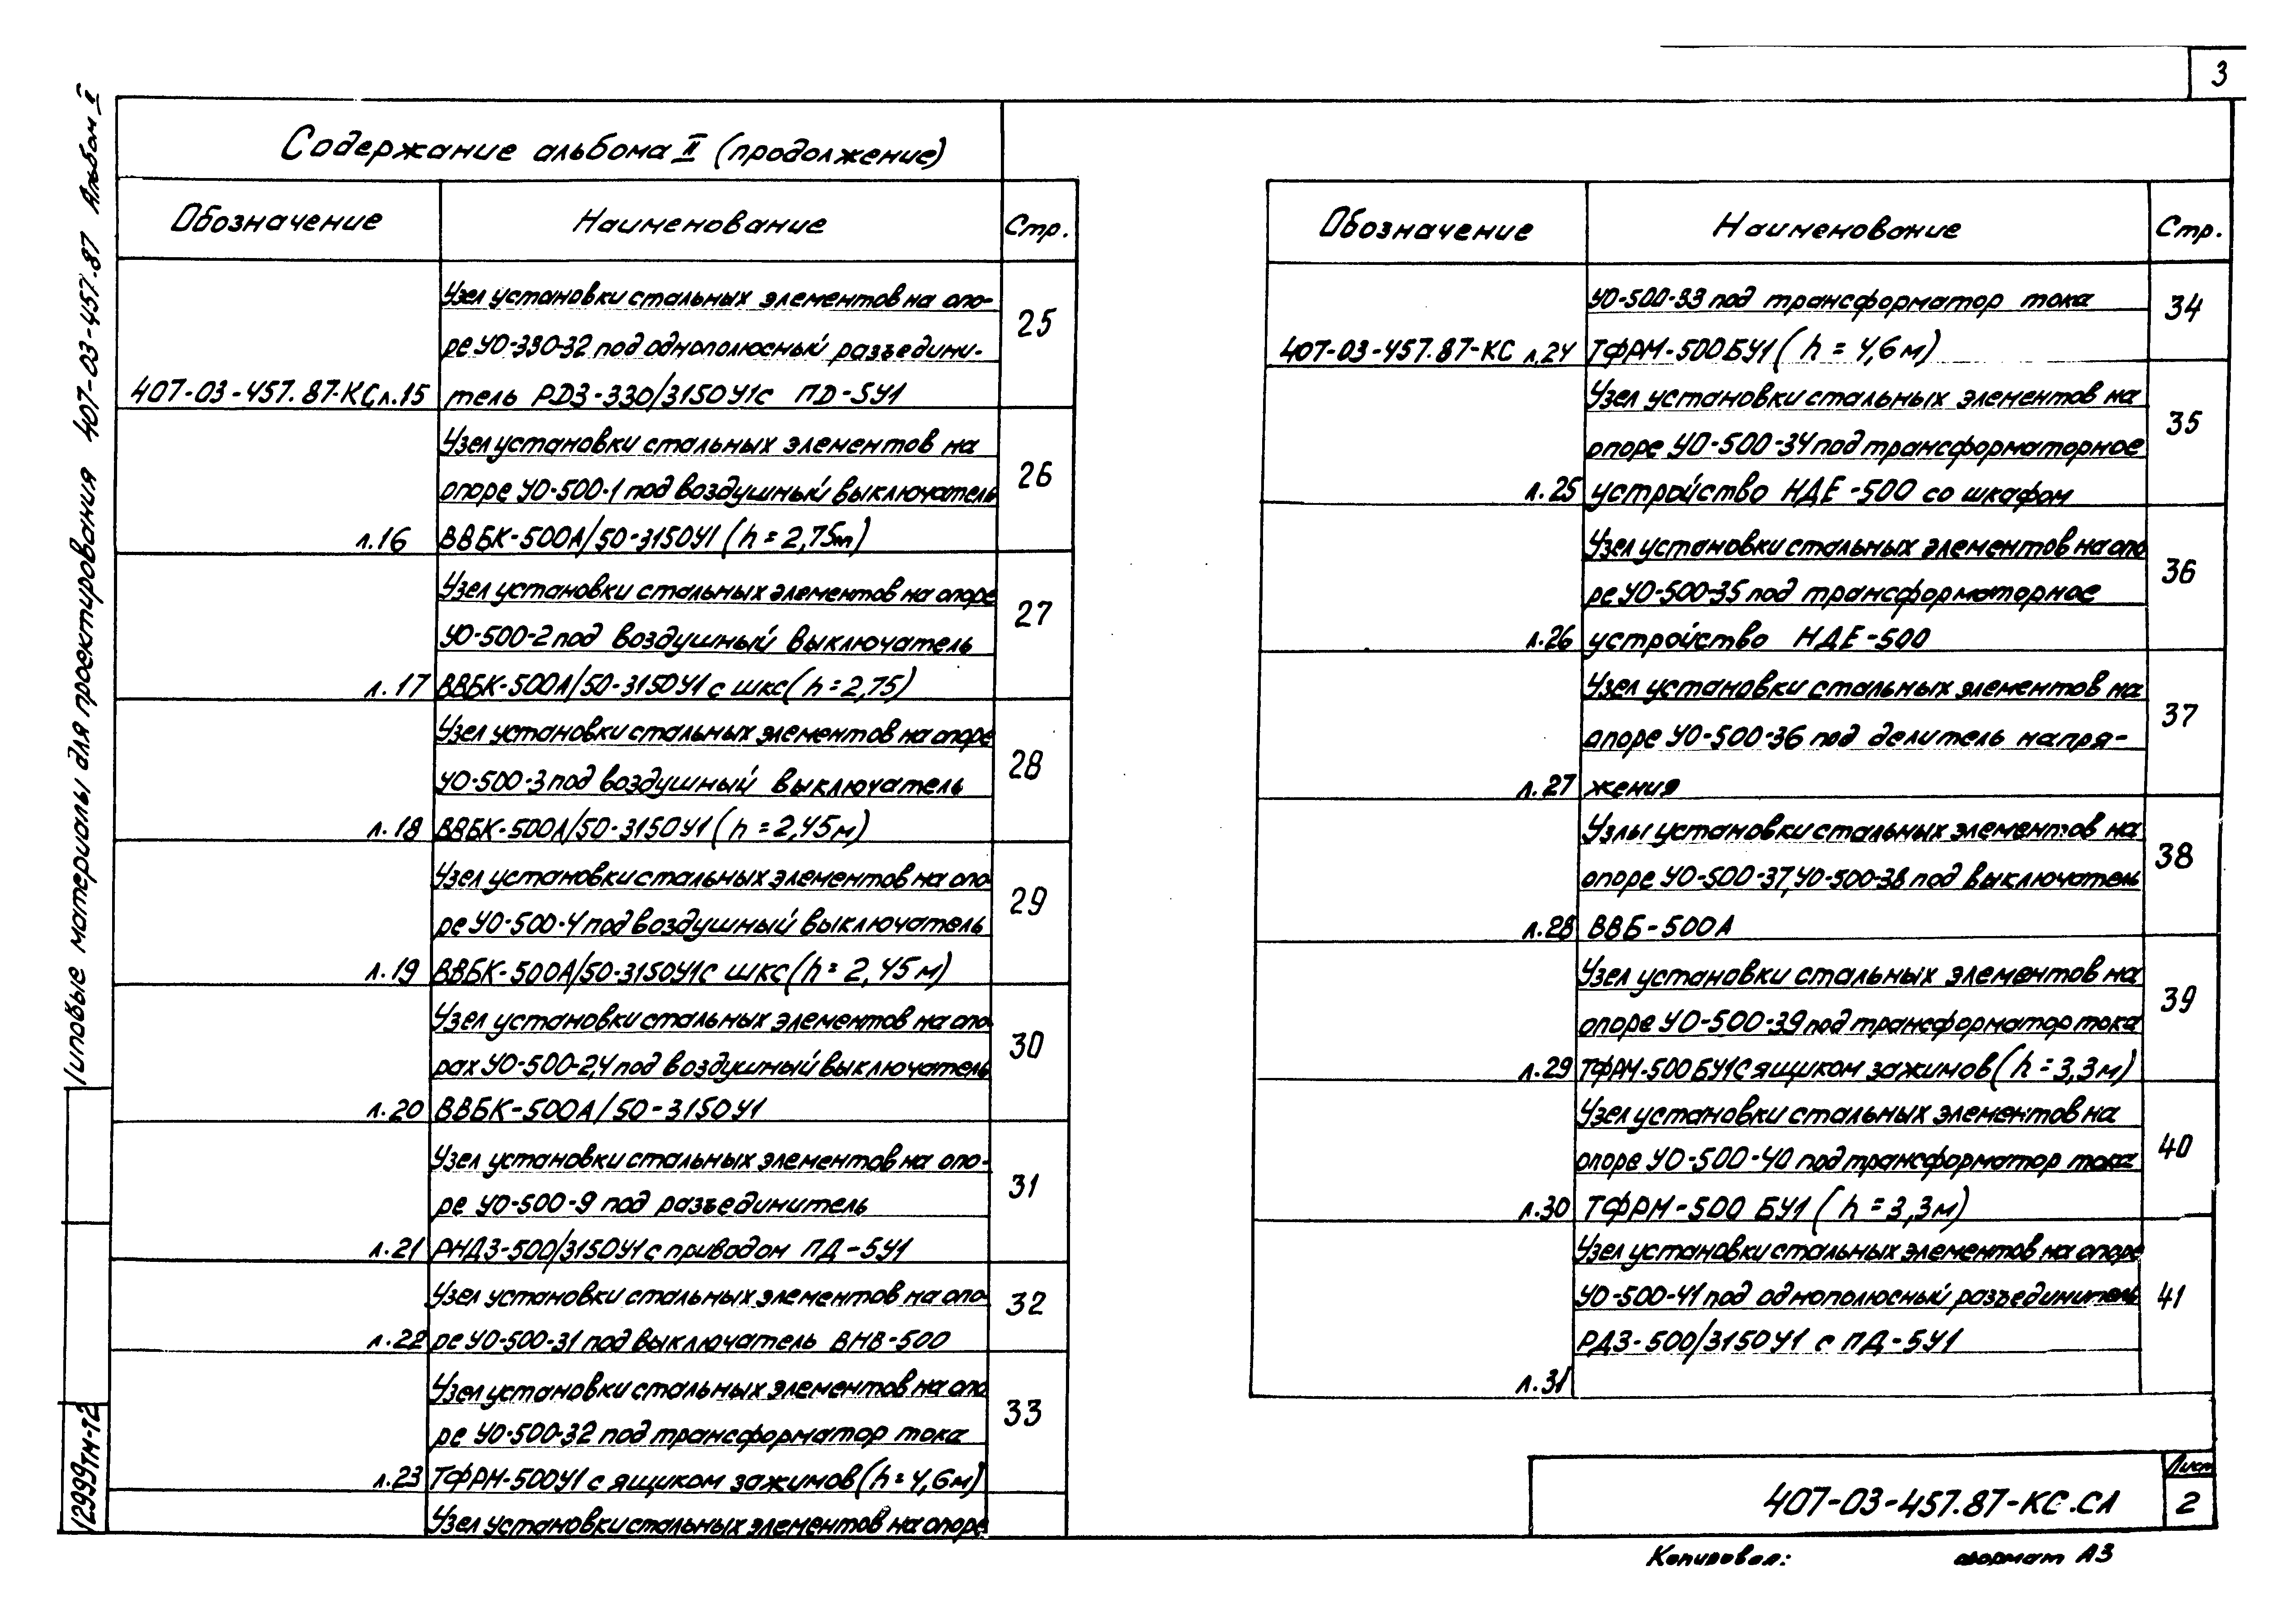 3
Типовые материалы для проектирования 407-03-457.87 Альбом II
12999тм-т2
Содержание альбома II (продолжение)
Обозначение Наименование Стр.
Узел установки стальных элементов на опо-
ре УО-330-32 под однополюсный разъедини-
407-03-457.87-КС л.15 тель РДЗ-330/3150У1с ПД-5У1 25
Узел установки стальных элементов на
опоре УО-500-1 под воздушный выключатель
л.16 ВВБК-500А/50-3150У1 (h=2,75м) 26
Узел установки стальных элементов на опоре
УО-500-2 под воздушный выключатель
л.17 ВВБК-500А/50-3150У1 с шкс (h=2,75) 27
Узел установки стальных элементов на опоре
УО-500-3 под воздушный выключатель
л.18 ВВБК-500А/50-3150У1 (h=2,45м) 28
Узел установки стальных элементов на опо
ре УО-500-4 под воздушный выключатель
л.19 ВВБК-500А/50-3150У1с шкс (h=2,45м) 29
Узел установки стальных элементов на опо
рах УО-500-2,4 под воздушный выключатель
л.20 ВВБК-500А/50-3150У1 30
Узел установки стальных элементов на опо-
ре УО-500-9 под разъединитель
л.21 РНДЗ-500/3150У1 с приводом ПД-5У1 31
Узел установки стальных элементов на опо-
л.22 ре УО-500-31 под выключатель ВНВ-500 32
Узел установки стальных элементов на опо
ре УО-500-32 под трансформатор тока
л.23 ТФРМ-500У1 с ящиком зажимов (h=4,6м) 33
Узел установки стальных элементов на опоре
Обозначение Наименование Стр.
УО-500-33 под трансформатор тока
407-03-457.87-КС л.24 ТФРМ-500БУ1 (h=4,6м) 34
Узел установки стальных элементов на
опоре УО-500-34 под трансформаторное
л.25 устройство НДЕ-500 со шкафом 35
Узел установки стальных элементов на опо
ре УО-500-35 под трансформаторное
л.26 устройство НДЕ-500 36
Узел установки стальных элементов на
опоре УО-500-36 под делитель напря-
л.27 жения 37
Узлы установки стальных элементов на
опоре УО-500-37, УО-500-38 под выключатель
л.28 ВВБ-500А 38
Узел установки стальных элементов на
опоре УО-500-39 под трансформатор тока
л.29 ТФРМ-500БУ1С ящиком зажимов (h=3,3м) 39
Узел установки стальных элементов на
опоре УО-500-40 под трансформатор тока
л.30 ТФРМ-500 БУ1 (h=3,3м) 40
Узел установки стальных элементов на опоре
УО-500-41 под однополюсный разъединитель
РДЗ-500/3150У1 с ПД-5У1 41
л.31
407-03-457.87-КС.СЛ
Лист
2
Копировал: формат А3